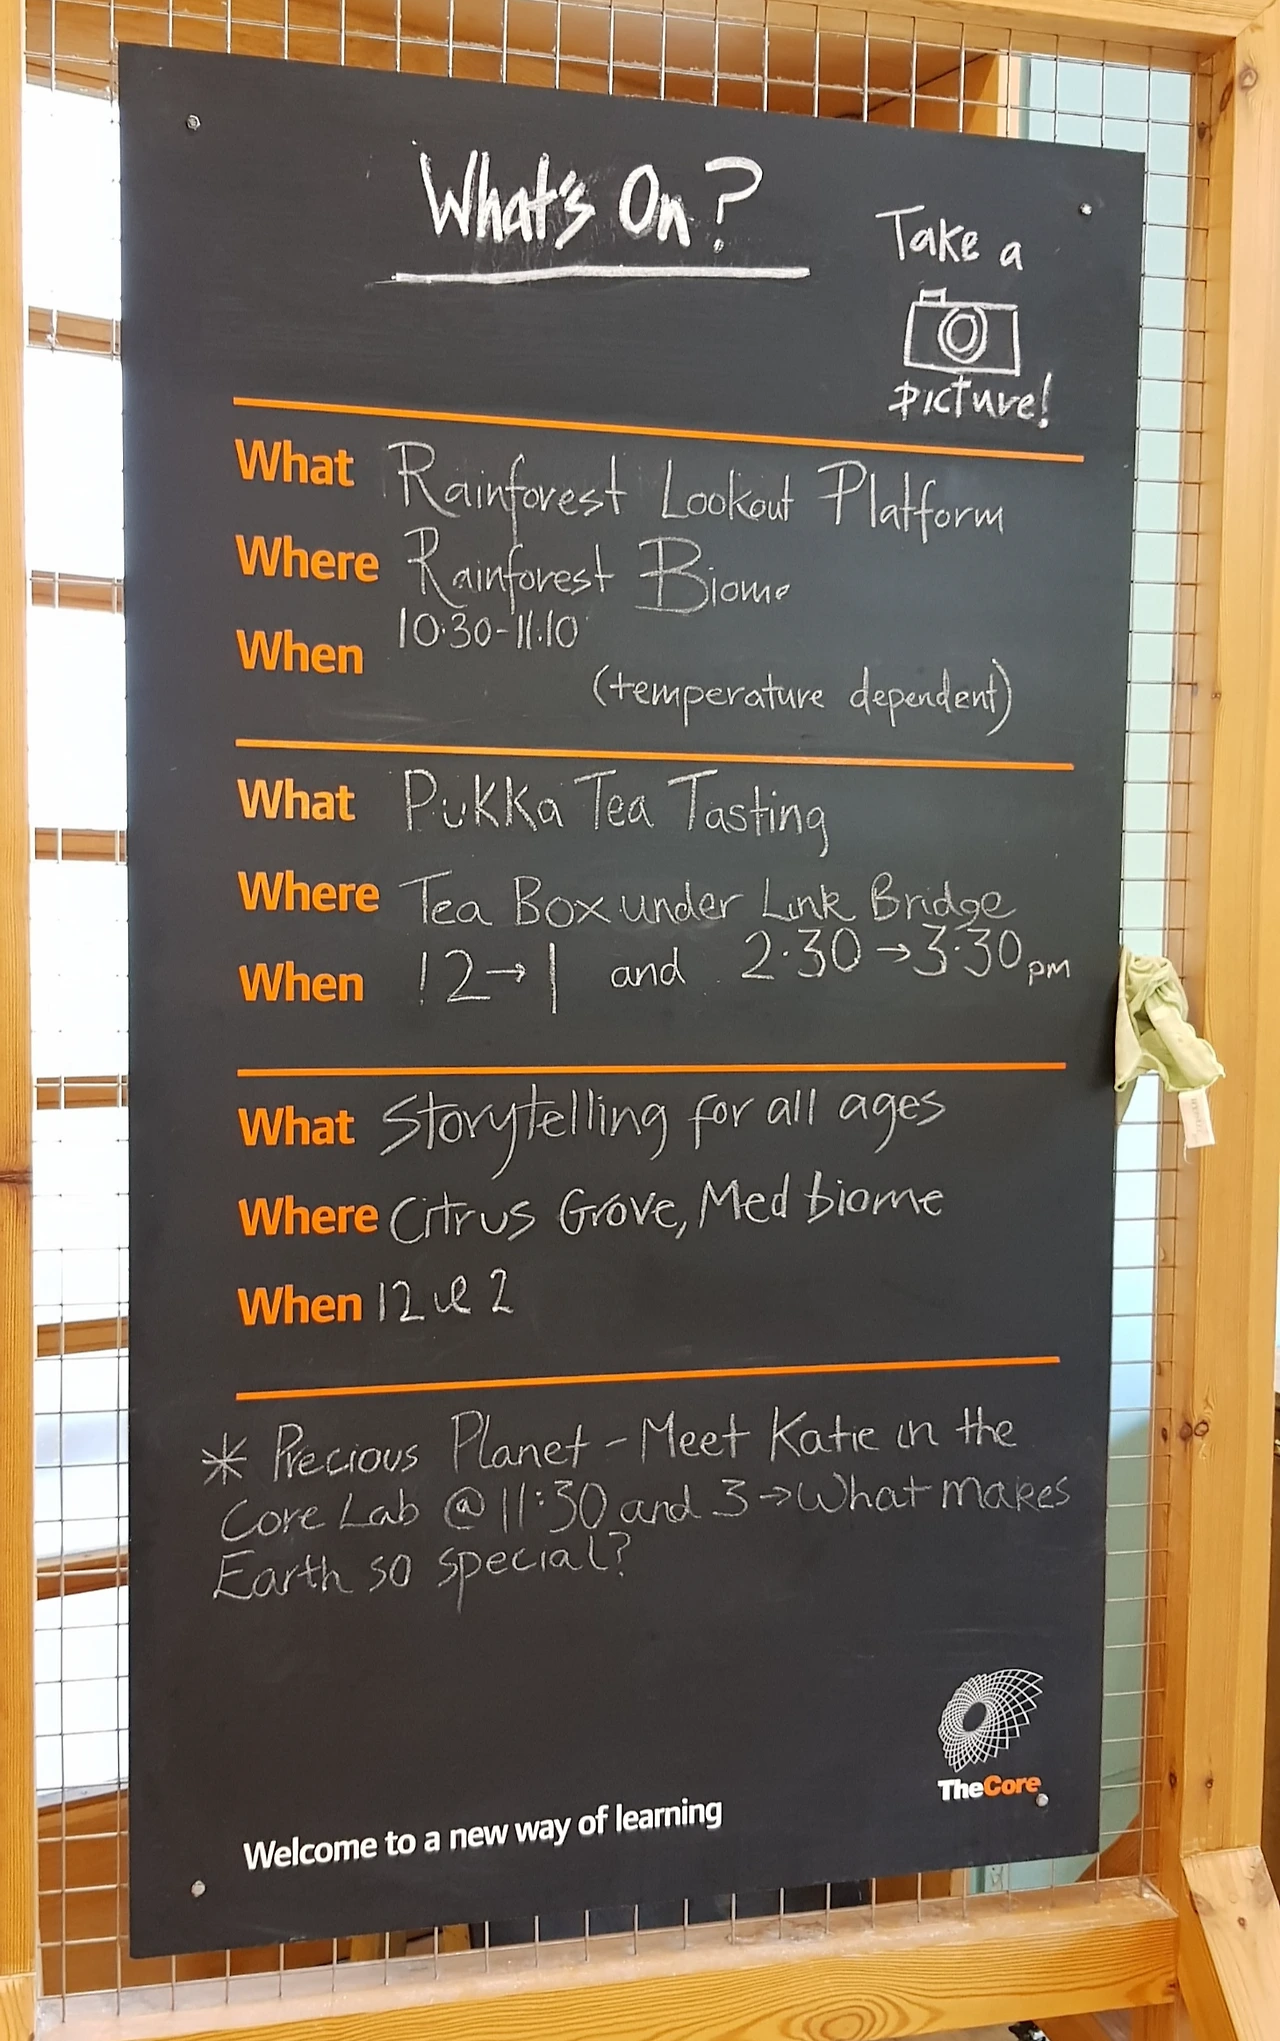 What's On?
Take a
picture!
What Rainforest Lookout Platform
Where Rainforest Biome
When 10:30-11:10
(temperature dependent)
What Pukka Tea Tasting
Where Tea Box under Link Bridge
When 12→1 and 2:30→3:30pm
What Storytelling for all ages
Where Citrus Grove, Med biome
When 12 & 2
* Precious Planet - Meet Katie in the
Core Lab @ 11:30 and 3 → What makes
Earth so special?
TheCore
Welcome to a new way of learning